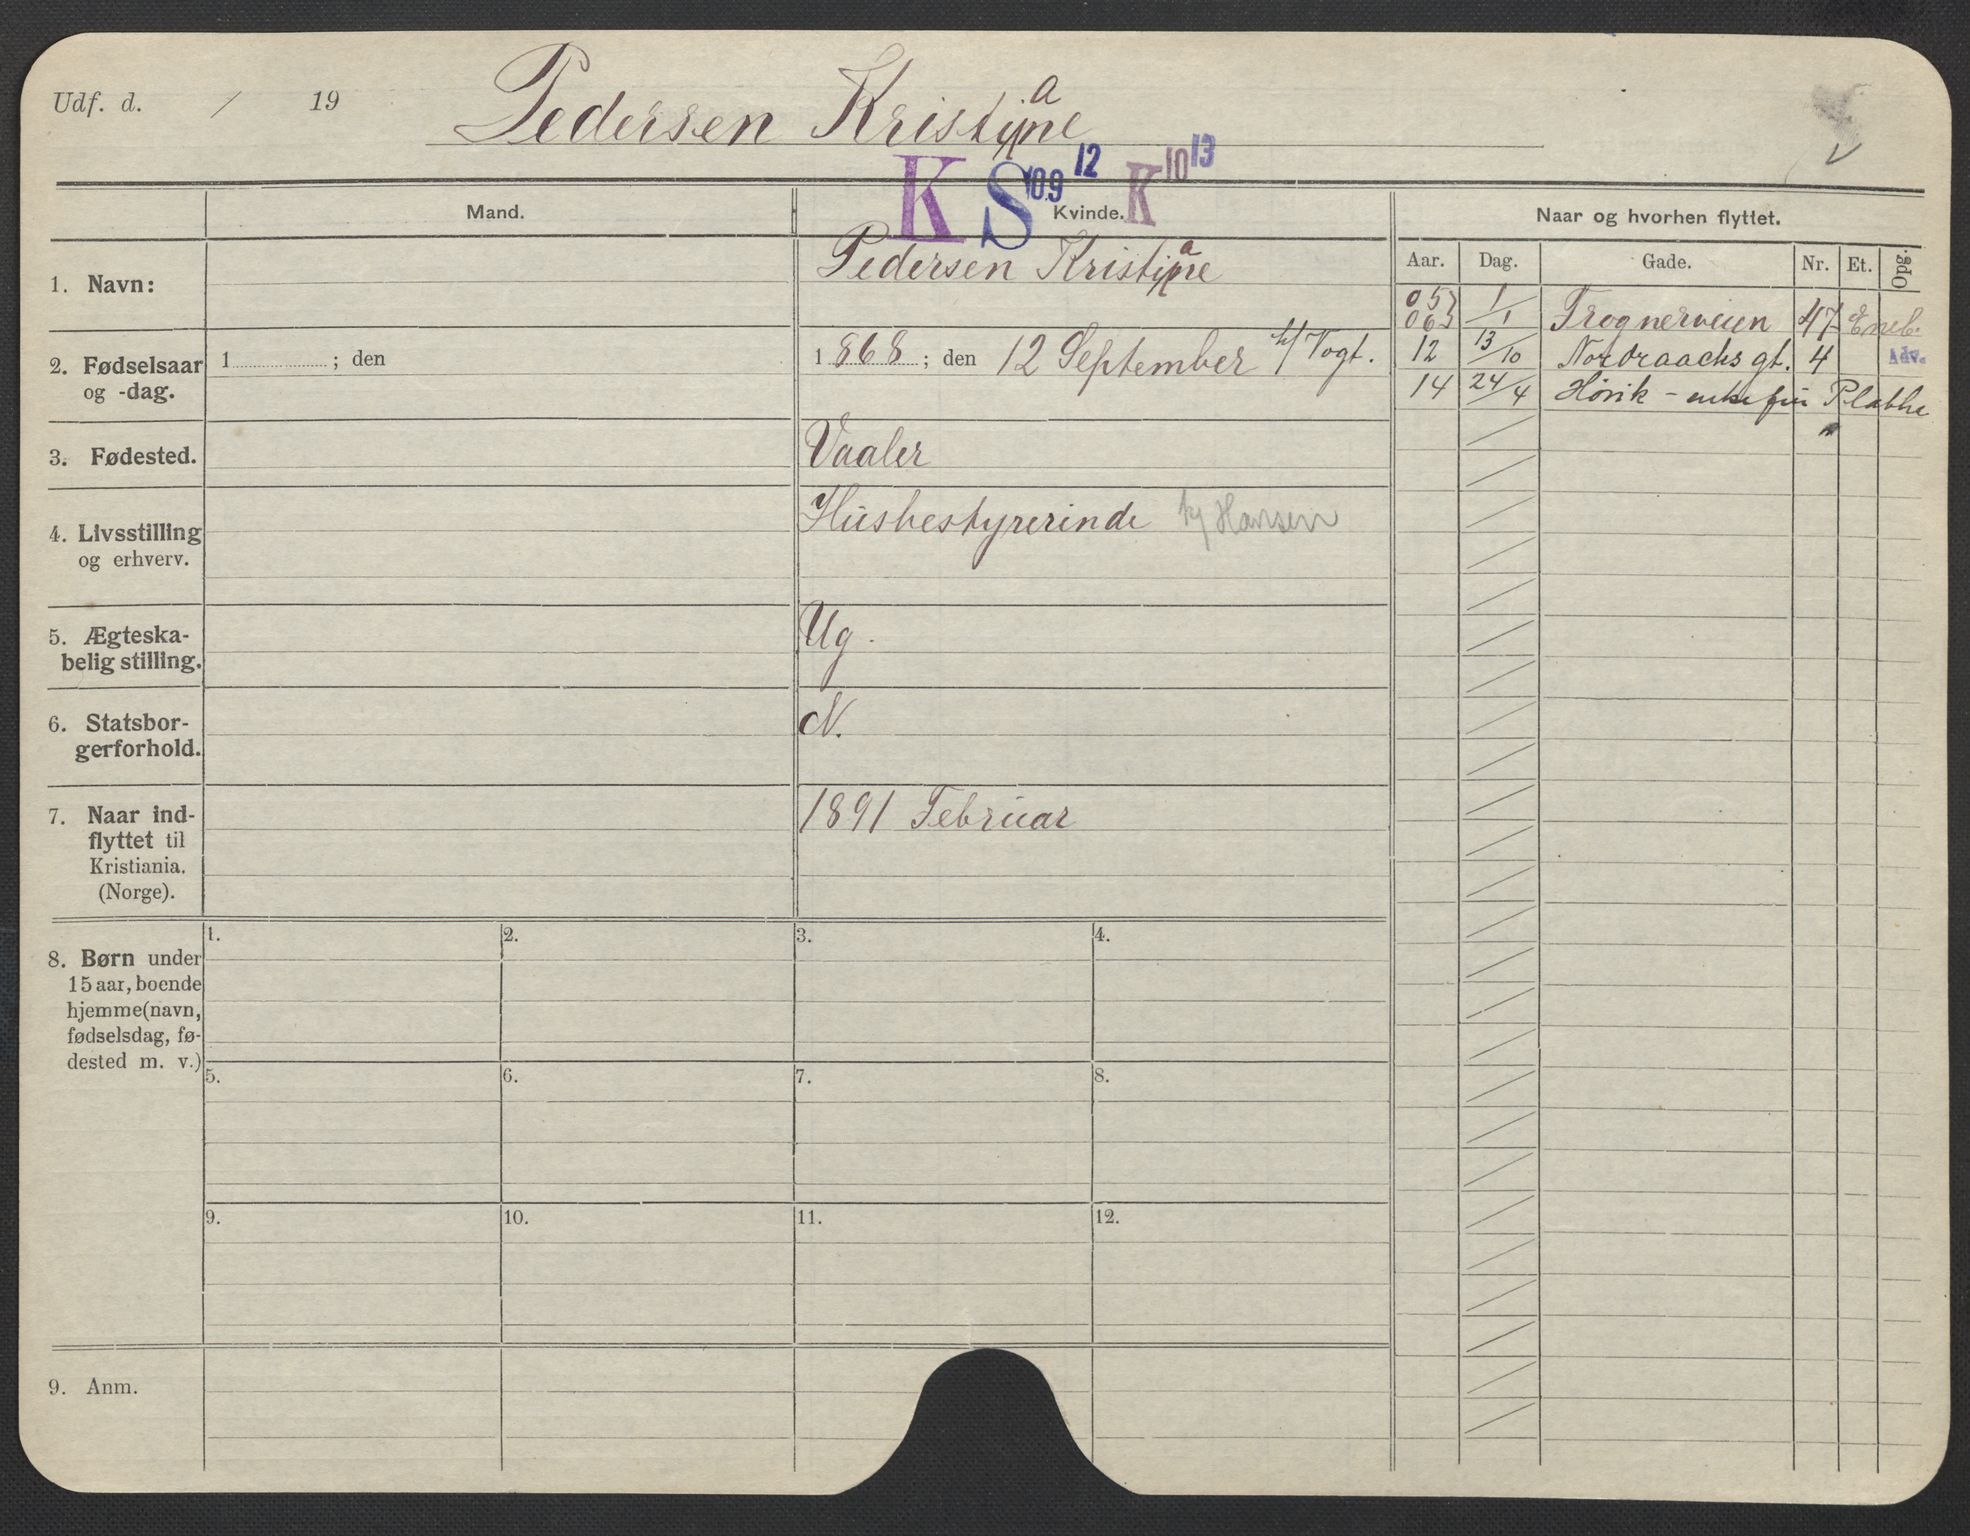 Udf. d. / 19
Pedersen Kristiane
K S 09 12 K 10 13
Mand.
Kvinde.
Naar og hvorhen flyttet.
Aar. Dag. Gade. Nr. Et. Opg.
1. Navn:
Pedersen Kristiane
2. Fødselsaar
og -dag.
1 ; den
1868 ; den 12 September h/ Vogt.
3. Fødested.
Vaaler
4. Livsstilling
og erhverv.
Husbestyrerinde h/ Hansen
5. Ægteska-
belig stilling.
Ug.
6. Statsbor-
gerforhold.
N.
7. Naar ind-
flyttet til
Kristiania.
(Norge).
1891 Februar
05
06 1/1 Frognerveien 47 Eneb.
12 13/10 Nordraachs gt. 4 Adv.
14 24/4 Hövik
8. Børn under
15 aar, boende
hjemme (navn,
fødselsdag, fø-
dested m. v.)
1. 2. 3. 4.
5. 6. 7. 8.
9. 10. 11. 12.
9. Anm.